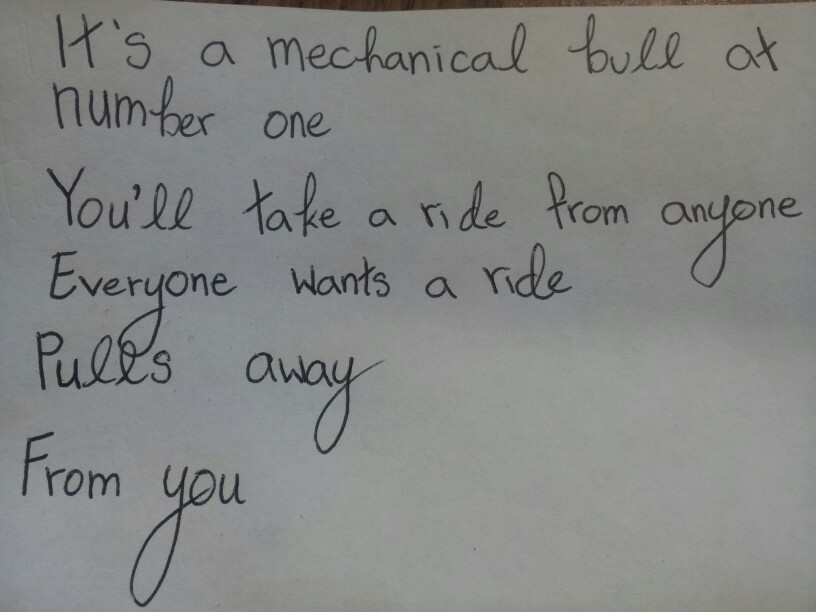 It's a mechanical bull at
number one
You'll take a ride from anyone
Everyone wants a ride
Pulls away
From you